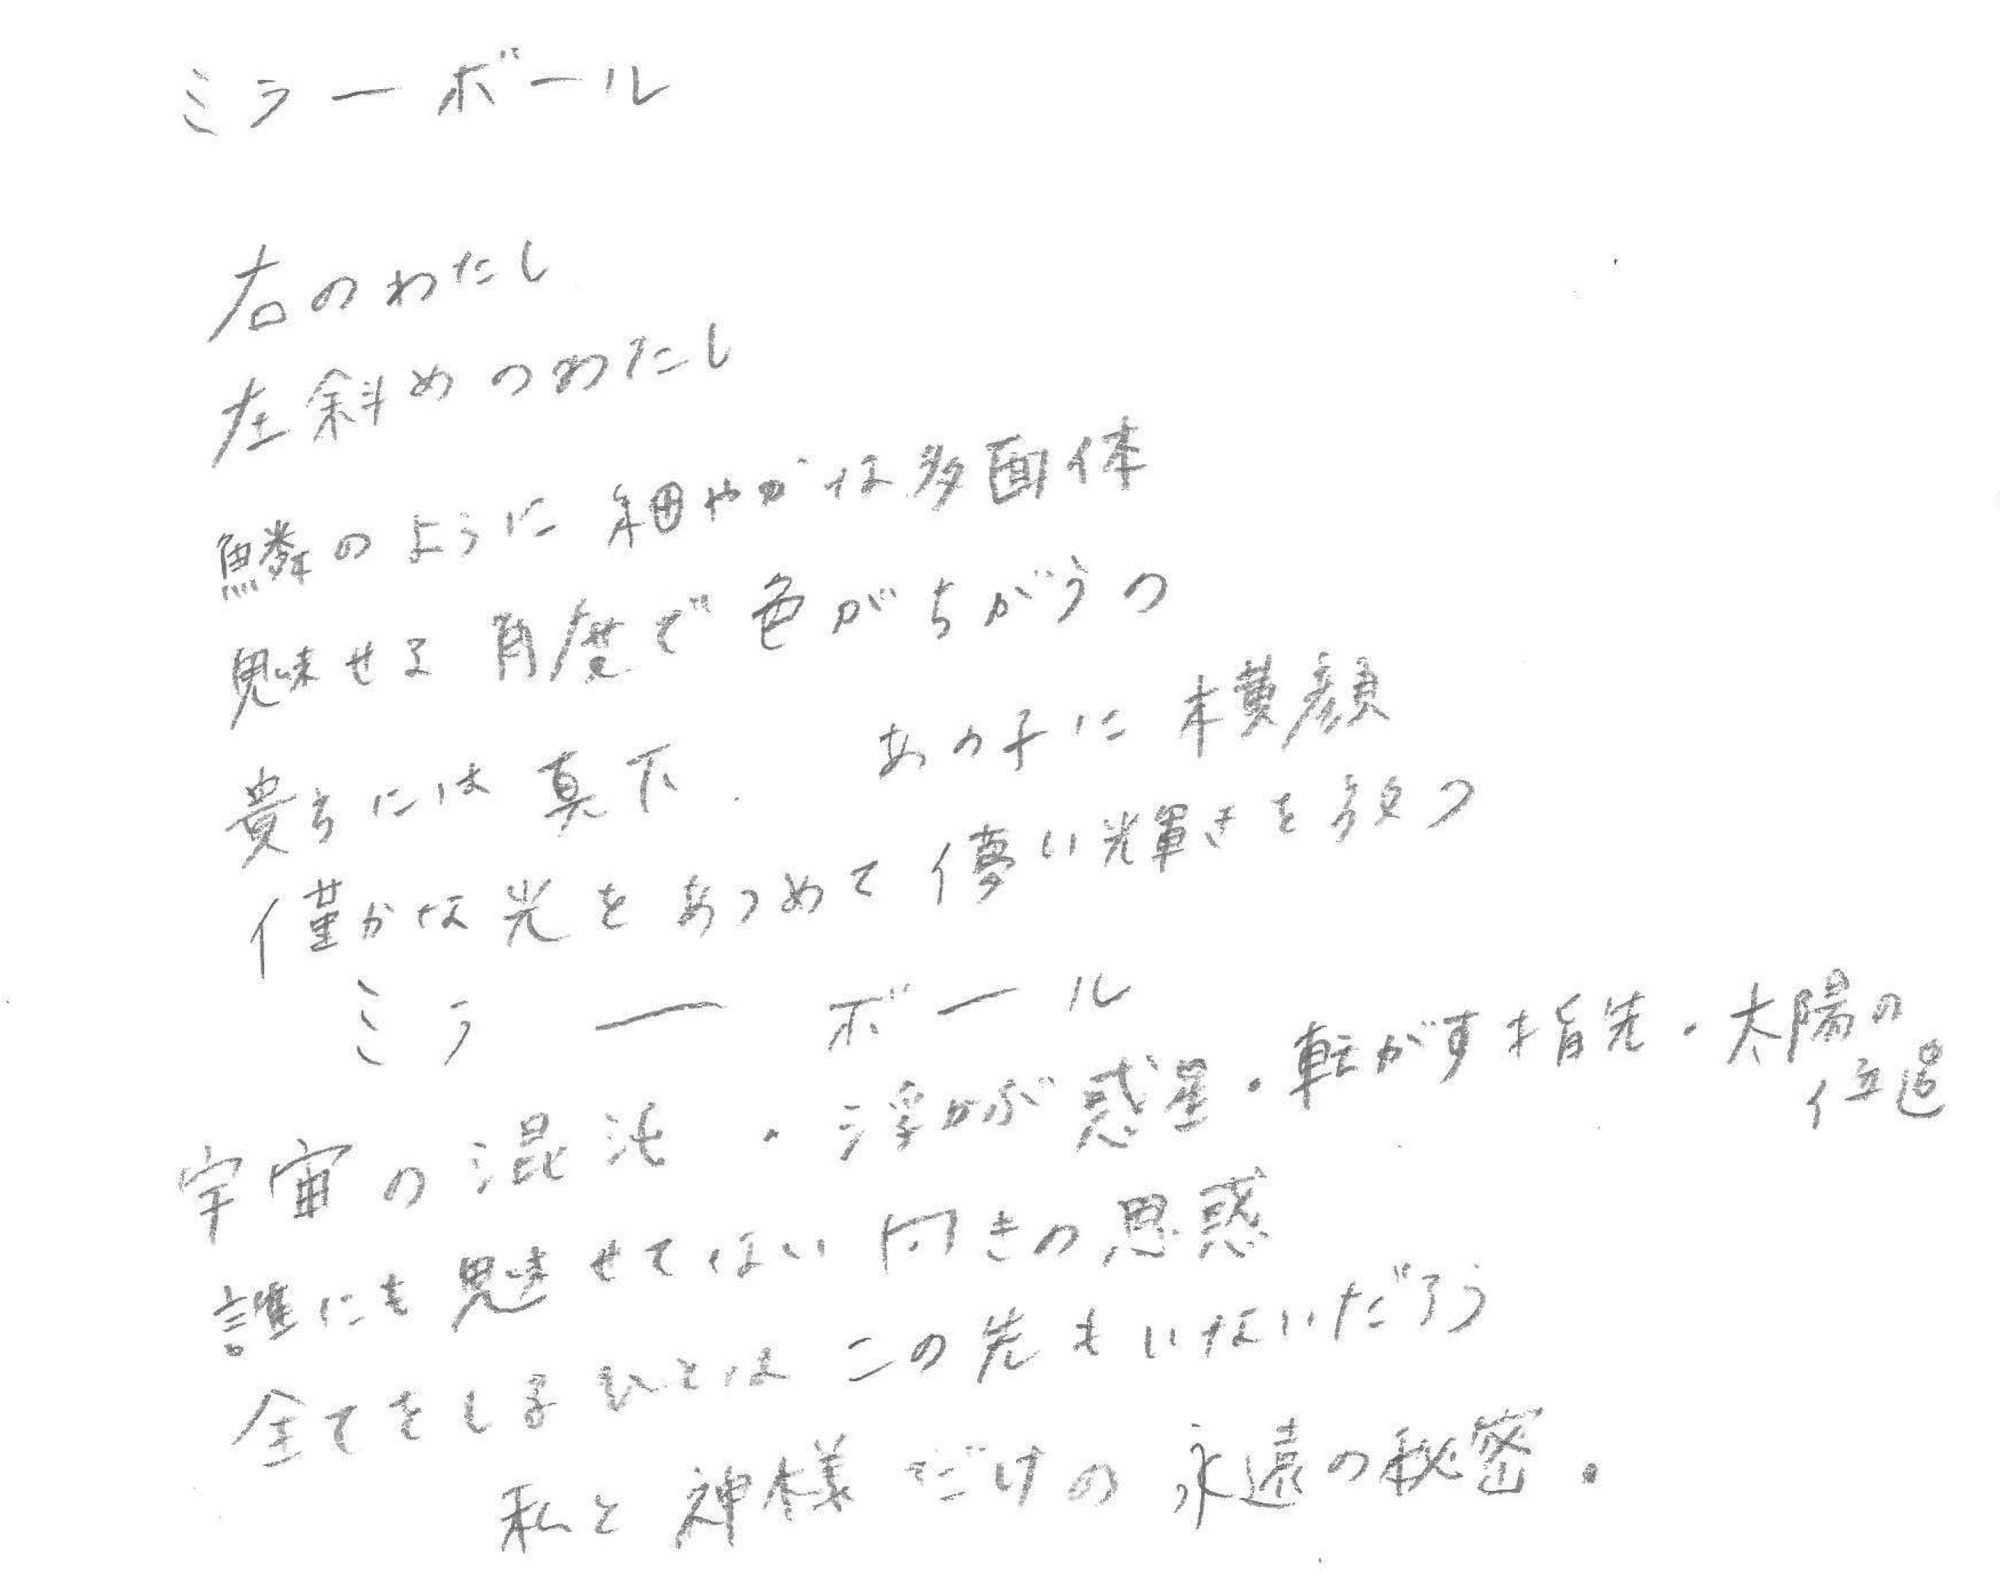 ミラーボール
右のわたし
左斜めのわたし
鱗のように細やかな多面体
魅せる角度で色がちがうの
貴方には真下. あの子に横顔
僅かな光をあつめて儚い輝きを放つ
ミラーボール
宇宙の混沌・浮かぶ惑星・転がす指先・太陽の
誰にも魅せてない向きの思惑
全てをしるひとはこの先もいないだろう
私と神様だけの永遠の秘密.